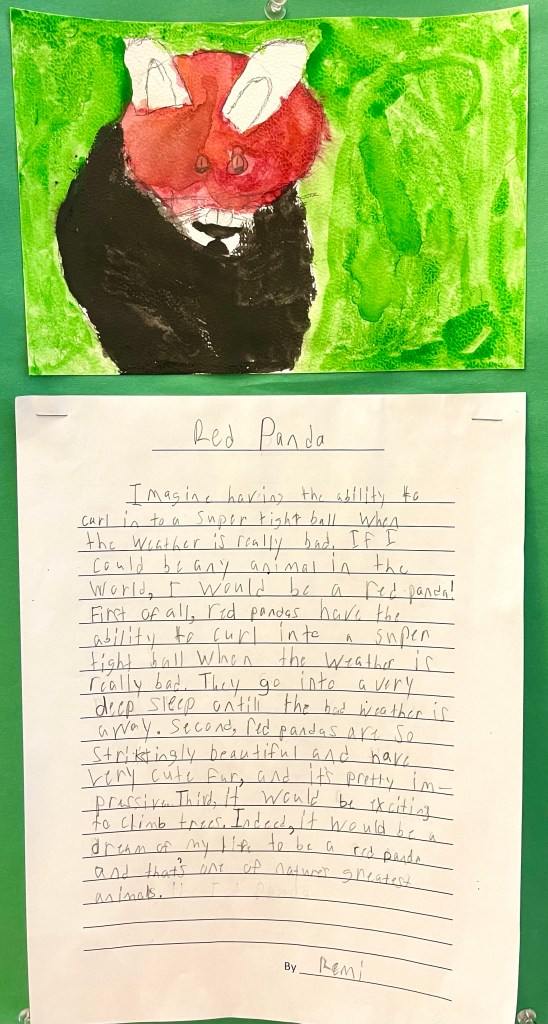 Red Panda
Imagine having the ability to
curl in to a super tight ball when
the weather is really bad. If I
could be any animal in the
world, I would be a red panda!
First of all, red pandas have the
ability to curl into a super
tight ball when the weather is
really bad. They go into a very
deep sleep untill the bad weather is
away. Second, red pandas are so
striktingly beautiful and have
very cute fur, and it's pretty im-
pressive. Third, it would be exciting
to climb trees. Indeed, it would be a
dream of my life to be a red panda
and that's one of natures greatest
animals.
By Remi